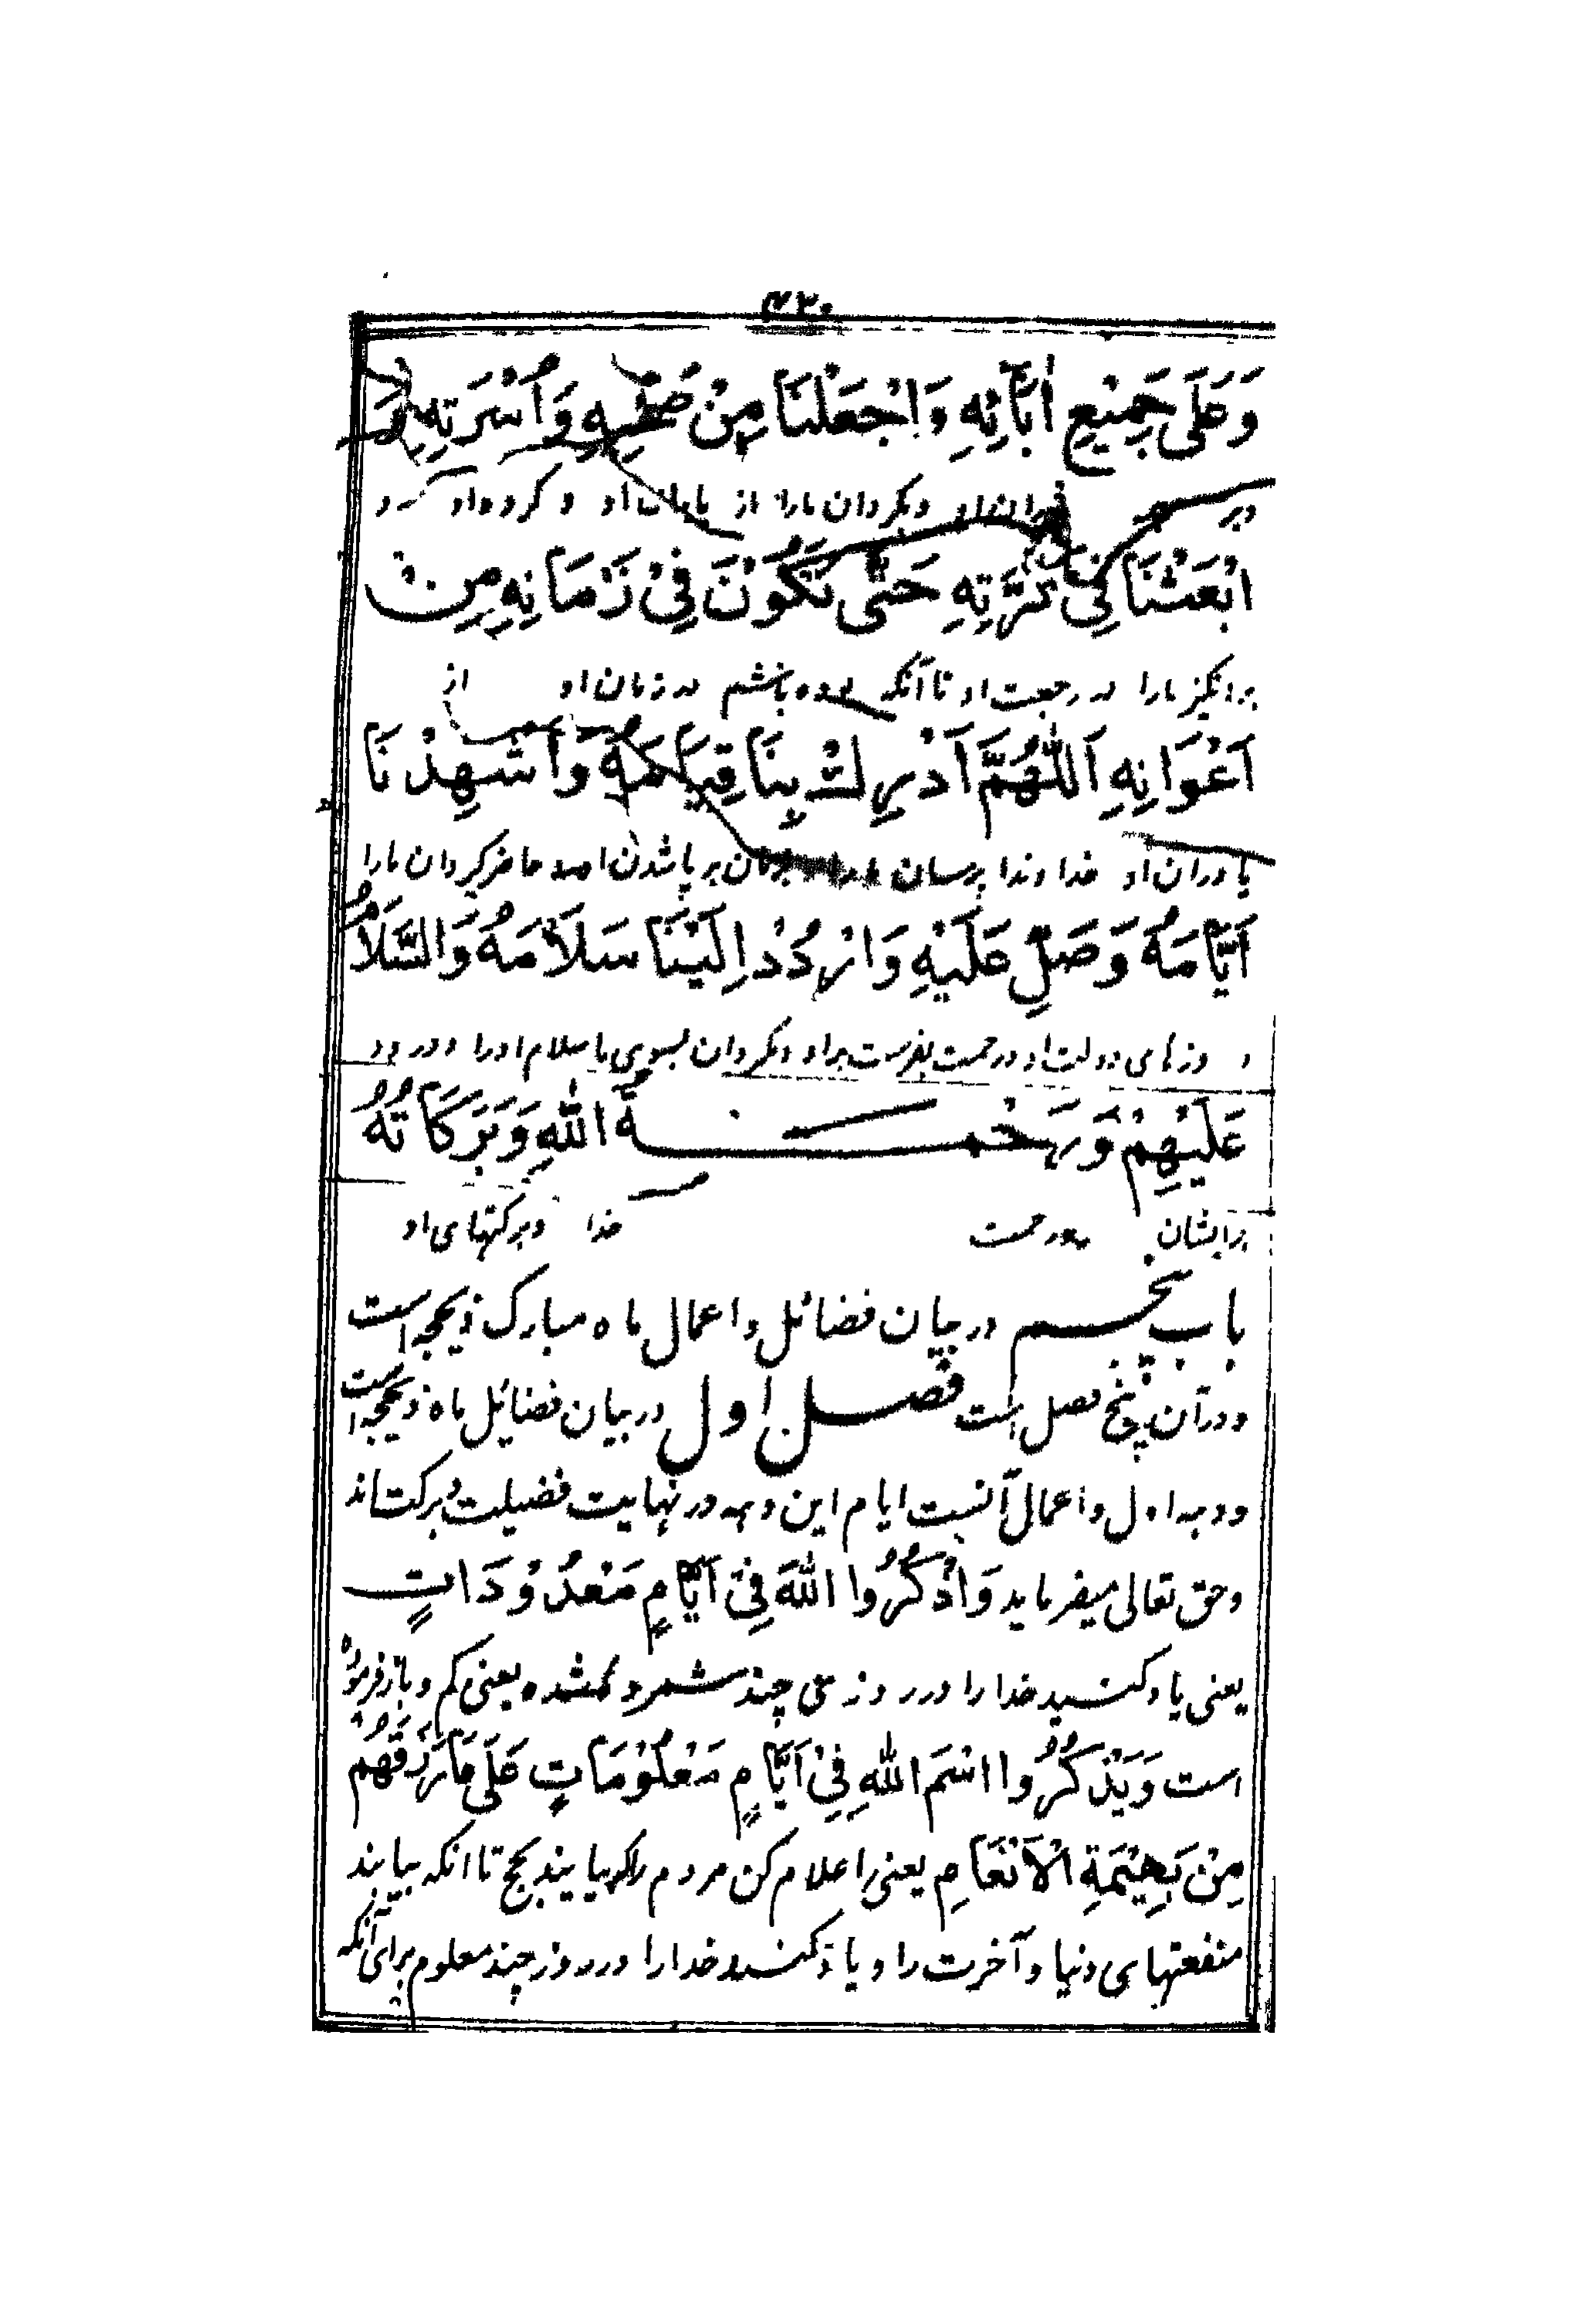 ۴۳۰
وَعَلَى جَمِيْعِ اٰبَآئِهِ وَاجْعَلْنَا مِنْ صَحْبِهِ وَاُسْرَتِهِ وَ
وبر پدران او وبگردان مارا از یاران او و گروه او و
ابْعَثْنَا فِی كَرَّتِهِ حَتّٰى نَكُوْنَ فِيْ زَمَانِهِ مِنْ
برانگیز مارا در رجعت او تا آنکه بوده باشم در زمان او از
اَعْوَانِهِ اَللّٰهُمَّ اَدْرِكْ بِنَا قِيَامَهُ وَاَشْهِدْنَا
یاوران او خداوندا برسان بزمان بر پا شدن او وحاضر گردان مارا
اَيَّامَهُ وَصَلِّ عَلَيْهِ وَارْدُدْ اِلَيْنَا سَلَامَهُ وَالسَّلَامُ
روزهای دولت او ورحمت بفرست بر او وبگردان بسوی ما سلام اورا ودرود
عَلَيْهِمْ وَرَحْمَةُ اللّٰهِ وَبَرَكَاتُهُ
برایشان ورحمت خدا وبرکتهای او
باب پنجم در بیان فضائل واعمال ماه مبارک ذیحجه است
ودرآن پنج فصل است فصل اول در بیان فضائل ماه ذیحجه است
ودهه اول واعمال آنست ایام این دهه در نهایت فضیلت وبرکت اند
وحق تعالی میفرماید وَاذْكُرُوا اللّٰهَ فِیْ اَيَّامٍ مَعْدُوْدَاتٍ
یعنی یاد کنید خدا را در روز های چند شمرده شده یعنی کم وباز فرموده
است وَيَذْكُرُوا اسْمَ اللّٰهِ فِیْ اَيَّامٍ مَعْلُوْمَاتٍ عَلَى مَا رَزَقَهُمْ
مِنْ بَهِيْمَةِ الْاَنْعَامِ یعنی اعلام کن مردم را که بیایند بحج تا انکه بیابند
منفعتهای دنیا وآخرت را ویاد کنید خدا را در روز چند معلوم برای آنکه